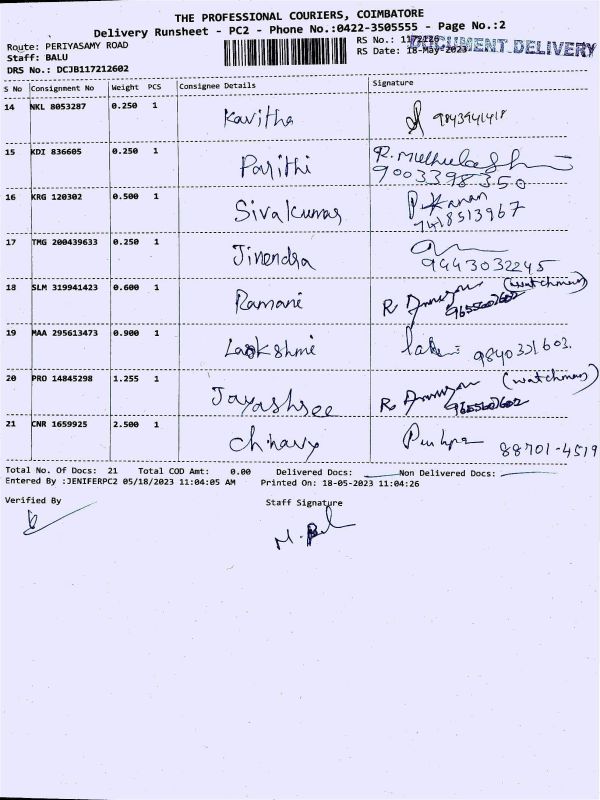 THE PROFESSIONAL COURIERS, COIMBATORE
Delivery Runsheet - PC2 - Phone No.:0422-3505555 - Page No.:2
Route: PERIYASAMY ROAD RS No.: 1172126 DOCUMENT DELIVERY
Staff: BALU RS Date: 18-May-2023
DRS No.: DCJB117212602
S No Consignment No Weight PCS Consignee Details Signature
14 NKL 8053287 0.250 1 Kavitha 9843941418
15 KDI 836605 0.250 1 Parithi R. 9003398350
16 KRG 120302 0.500 1 Sivakumar P. Kanan 7418513967
17 TMG 200439633 0.250 1 Jinendra 9443032245
18 SLM 319941423 0.600 1 Ramani R (watchman) 9655607602
19 MAA 295613473 0.900 1 Lakshmi 9840321603.
20 PRO 14845298 1.255 1 Jayashree R (watchman)
21 CNR 1659925 2.500 1 88701-4519
Total No. Of Docs: 21 Total COD Amt: 0.00 Delivered Docs: Non Delivered Docs:
Entered By :JENIFERPC2 05/18/2023 11:04:05 AM Printed On: 18-05-2023 11:04:26
Verified By Staff Signature